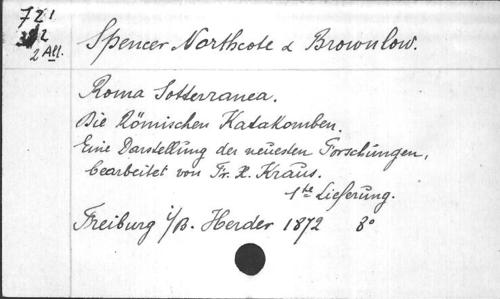 721
2
2 All.
Spencer Northcote & Brownlow.
Roma Sotterranea.
Die Römischen Katakomben.
Eine Darstellung der neuesten Forschungen,
bearbeitet von Fr. X. Kraus.
1te Lieferung.
Freiburg i/B. Herder 1872 8°